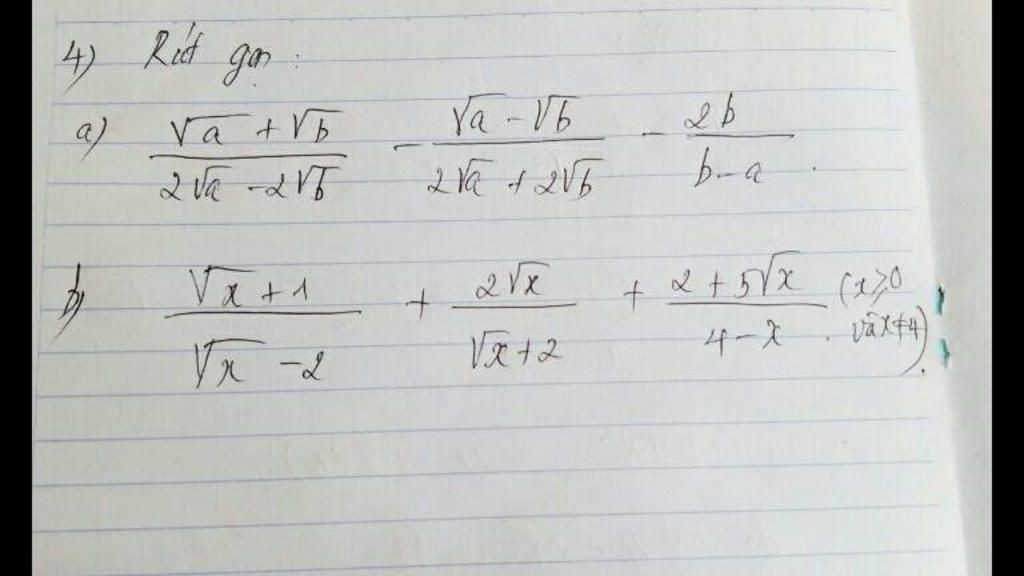 4) Rút gọn :
a) (√a + √b)/(2√a - 2√b) - (√a - √b)/(2√a + 2√b) - 2b/(b - a) .
b) (√x + 1)/(√x - 2) + 2√x/(√x + 2) + (2 + 5√x)/(4 - x) . (x ≥ 0
và x ≠ 4).